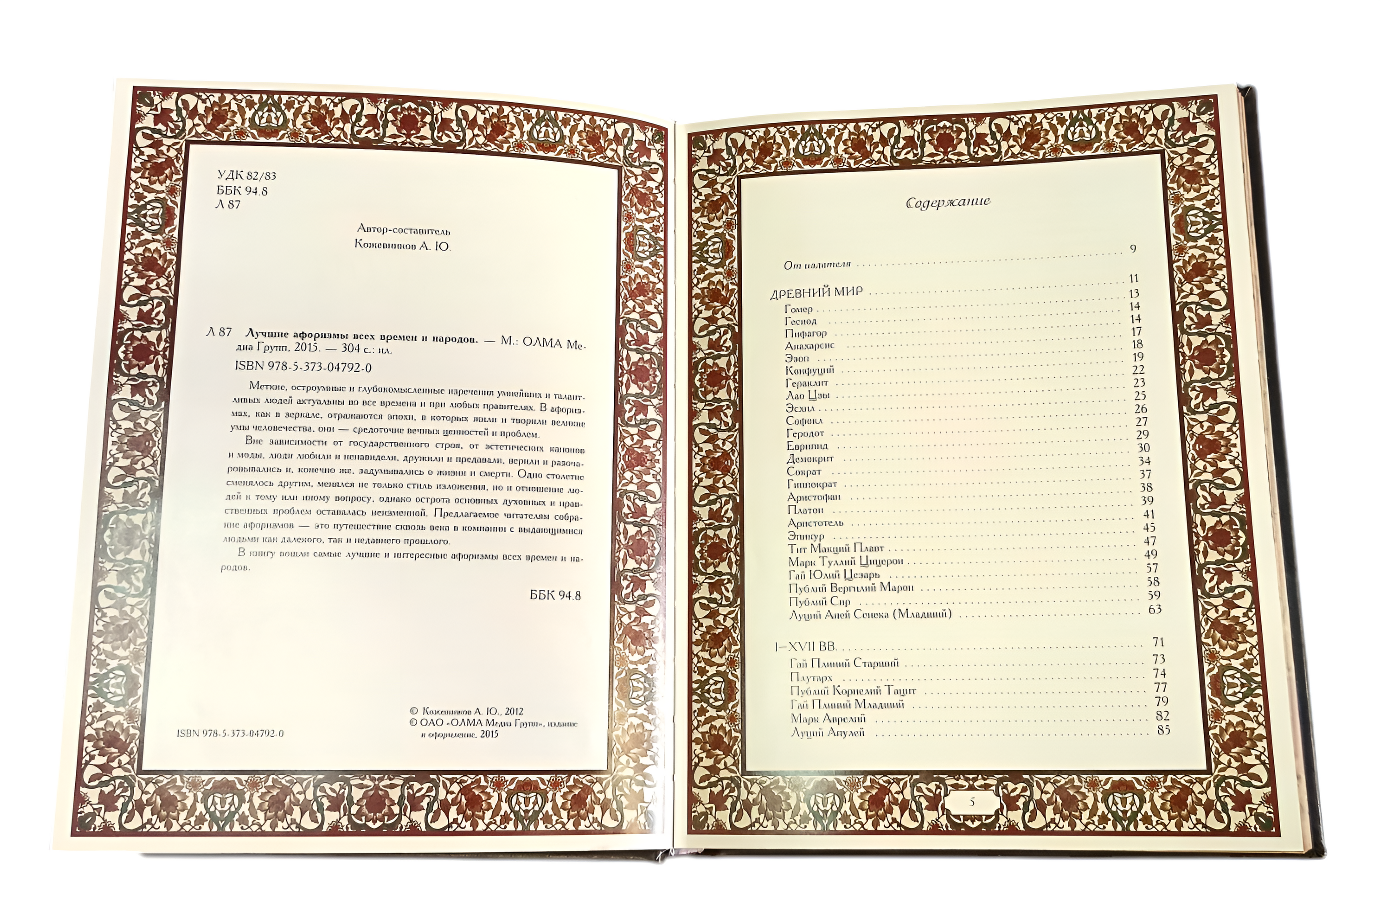 УДК 82/83
ББК 94.8
Л 87
Автор-составитель
Кожевников А. Ю.
Л 87 Лучшие афоризмы всех времен и народов. — М.: ОЛМА Ме-
диа Групп, 2015. — 304 с.: ил.
ISBN 978-5-373-04792-0
Меткие, остроумные и глубокомысленные изречения умнейших и талант-
ливых людей актуальны во все времена и при любых правителях. В афориз-
мах, как в зеркале, отражаются эпохи, в которых жили и творили великие
умы человечества, они — средоточие вечных ценностей и проблем.
Вне зависимости от государственного строя, от эстетических канонов
и моды, люди любили и ненавидели, дружили и предавали, верили и разоча-
ровывались и, конечно же, задумывались о жизни и смерти. Одно столетие
сменялось другим, менялся не только стиль изложения, но и отношение лю-
дей к тому или иному вопросу, однако острота основных духовных и нрав-
ственных проблем оставалась неизменной. Предлагаемое читателям собра-
ние афоризмов — это путешествие сквозь века в компании с выдающимися
людьми как далекого, так и недавнего прошлого.
В книгу вошли самые лучшие и интересные афоризмы всех времен и на-
родов.
ББК 94.8
© Кожевников А. Ю., 2012
© ОАО «ОЛМА Медиа Групп», издание
и оформление, 2015
ISBN 978-5-373-04792-0
Содержание
От издателя 9
ДРЕВНИЙ МИР 11
Гомер 13
Гесиод 14
Пифагор 14
Анахарсис 17
Эзоп 18
Конфуций 19
Гераклит 22
Лао Цзы 23
Эсхил 25
Софокл 26
Геродот 27
Еврипид 29
Демокрит 30
Сократ 34
Гиппократ 37
Аристофан 38
Платон 39
Аристотель 41
Эпикур 45
Тит Макций Плавт 47
Марк Туллий Цицерон 49
Гай Юлий Цезарь 57
Публий Вергилий Марон 58
Публий Сир 59
Луций Аней Сенека (Младший) 63
I—XVII ВВ. 71
Гай Плиний Старший 73
Плутарх 74
Публий Корнелий Тацит 77
Гай Плиний Младший 79
Марк Аврелий 82
Луций Апулей 85
5